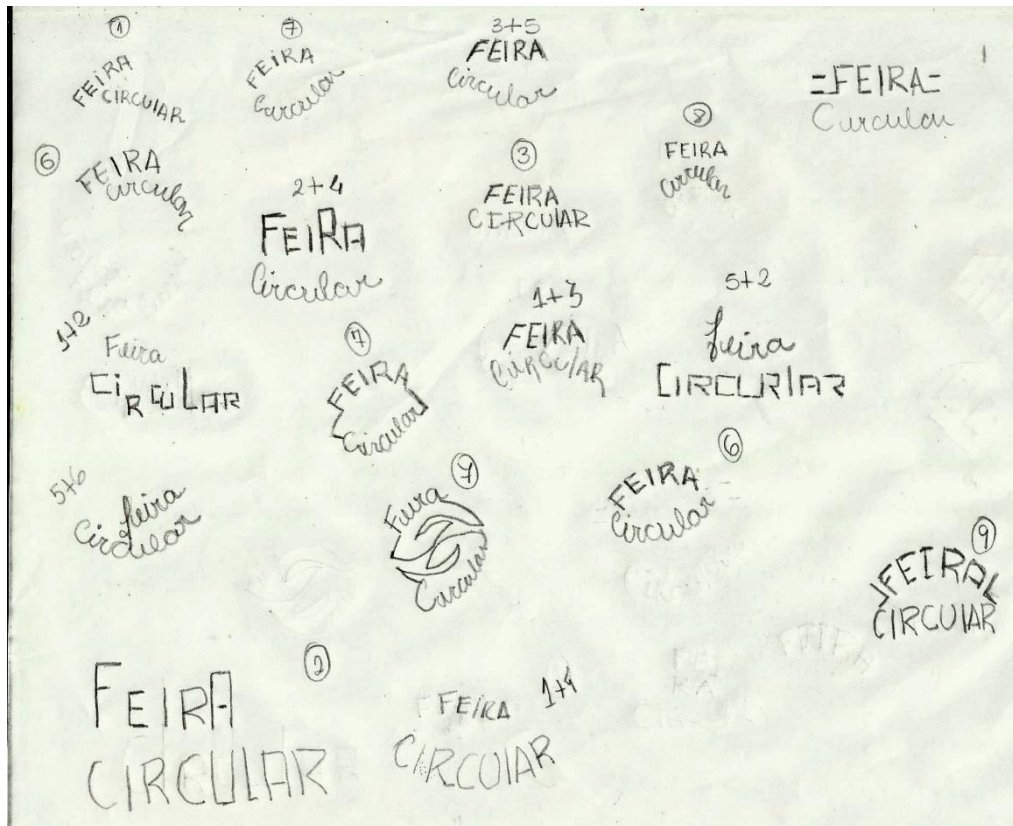 1
FEIRA
CIRCULAR
7
FEIRA
Circular
3+5
FEIRA
Circular
-FEIRA-
Circular
6
FEIRA
Circular
2+4
FEIRA
Circular
3
FEIRA
CIRCULAR
8
FEIRA
Circular
Feira
CIRCULAR
7
FEIRA
Circular
1+3
FEIRA
CIRCULAR
5+2
feira
CIRCURLAR
5+6
feira
Circular
7
Feira
Circular
6
FEIRA
Circular
9
FEIRA
CIRCULAR
FEIRA
CIRCULAR
1+4
FEIRA
CIRCULAR